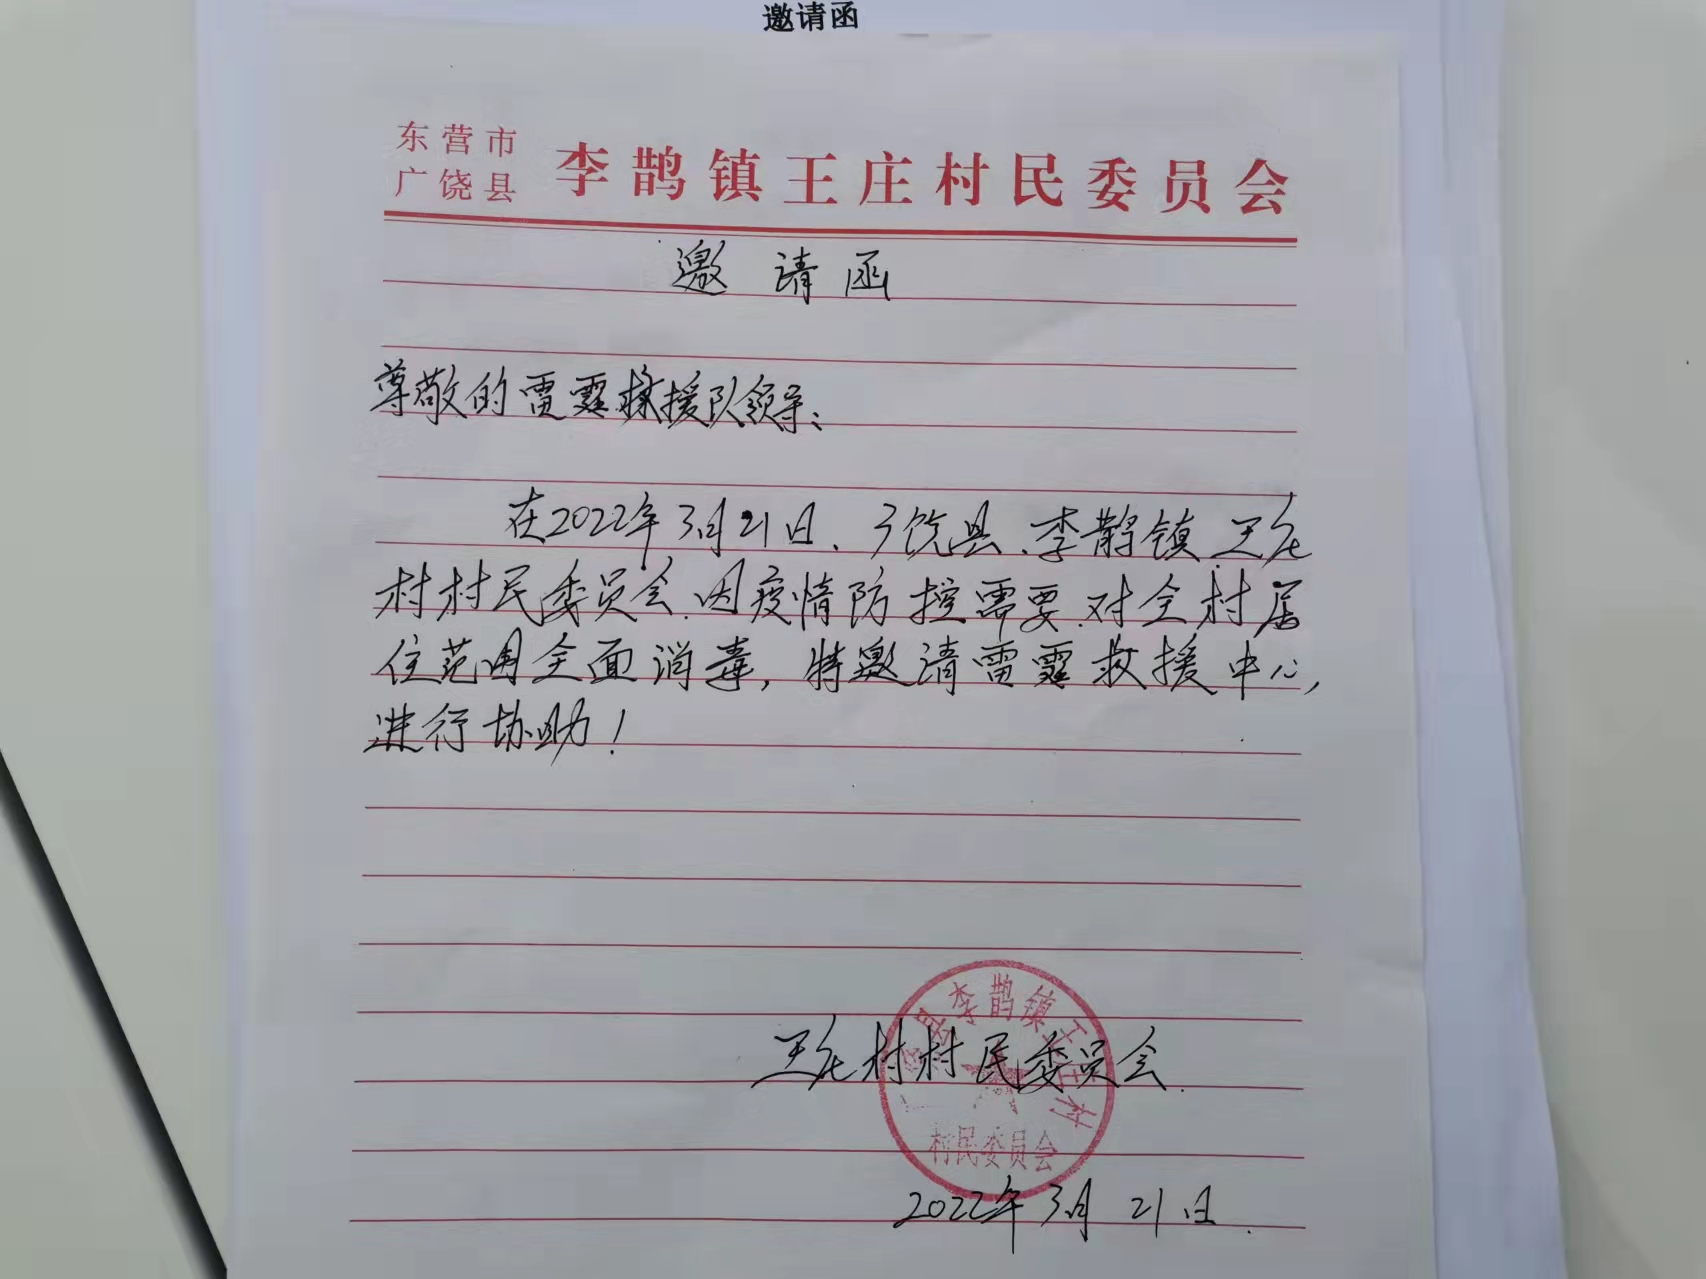 邀请函
东营市
广饶县
李鹊镇王庄村民委员会
邀请函
尊敬的雷霆救援队领导：
在2022年3月21日、广饶县、李鹊镇王庄
村村民委员会.因疫情防控需要.对全村居
住范围全面消毒，特邀请雷霆救援中心，
进行协助！
李鹊镇王庄村
王庄村村民委员会.
村民委员会
2022年3月21日.